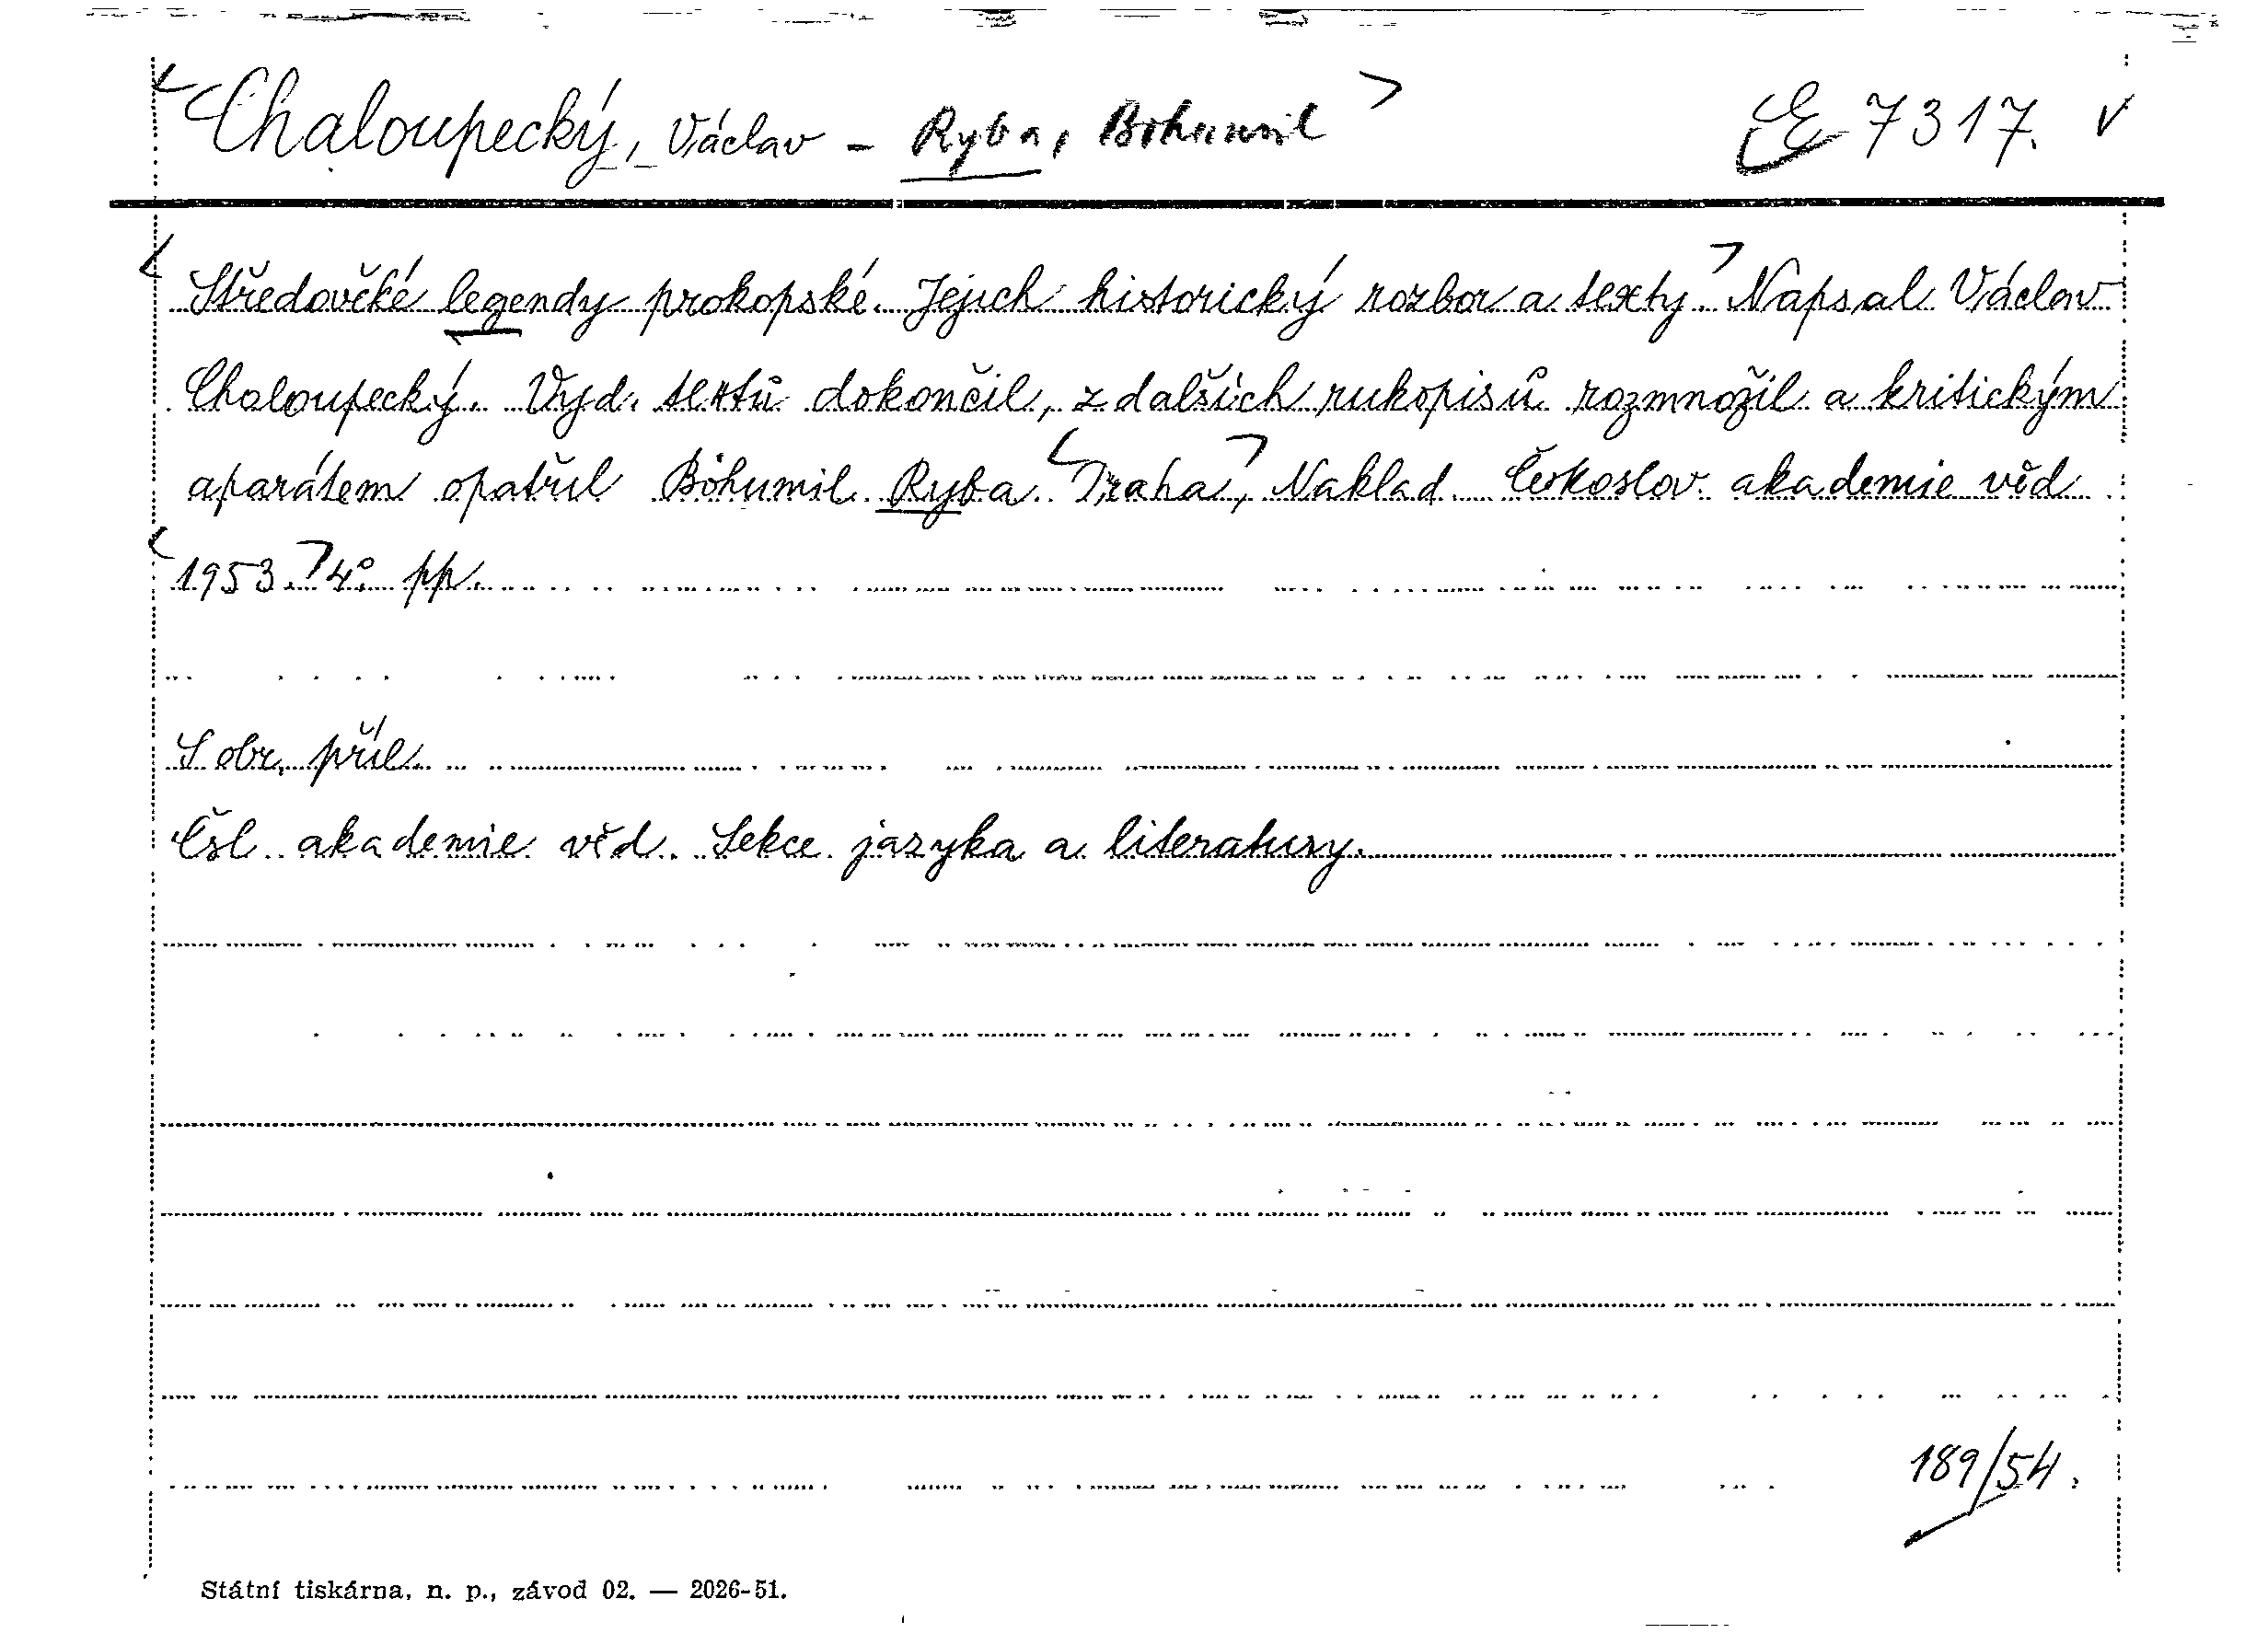 <Chaloupecký, Václav - Ryba, Bohumil> E 7317. v
<Středověké legendy prokopské. Jejich historický rozbor a texty.> Napsal Václav
Chaloupecký. Vyd. textů dokončil, z dalších rukopisů rozmnožil a kritickým
aparátem opatřil Bohumil Ryba. <Praha>, Naklad. Českoslov. akademie věd
<1953.> 4° pp.
S obr. příl.
Čsl. akademie věd. Sekce jazyka a literatury.
189/54.
Státní tiskárna, n. p., závod 02. — 2026-51.